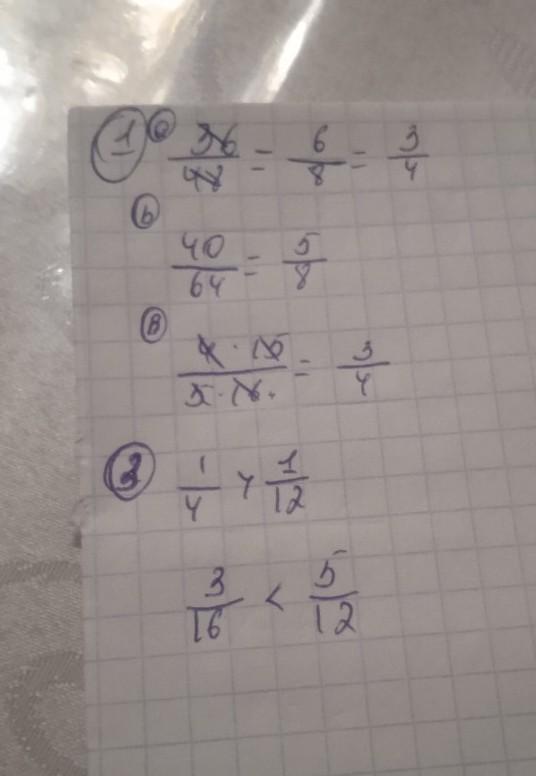 1 а 36/48 = 6/8 = 3/4
б
40/64 = 5/8
в
4 · 15 / 5 · 16 . = 3/4
2 1/4 > 1/12
3/16 < 5/12